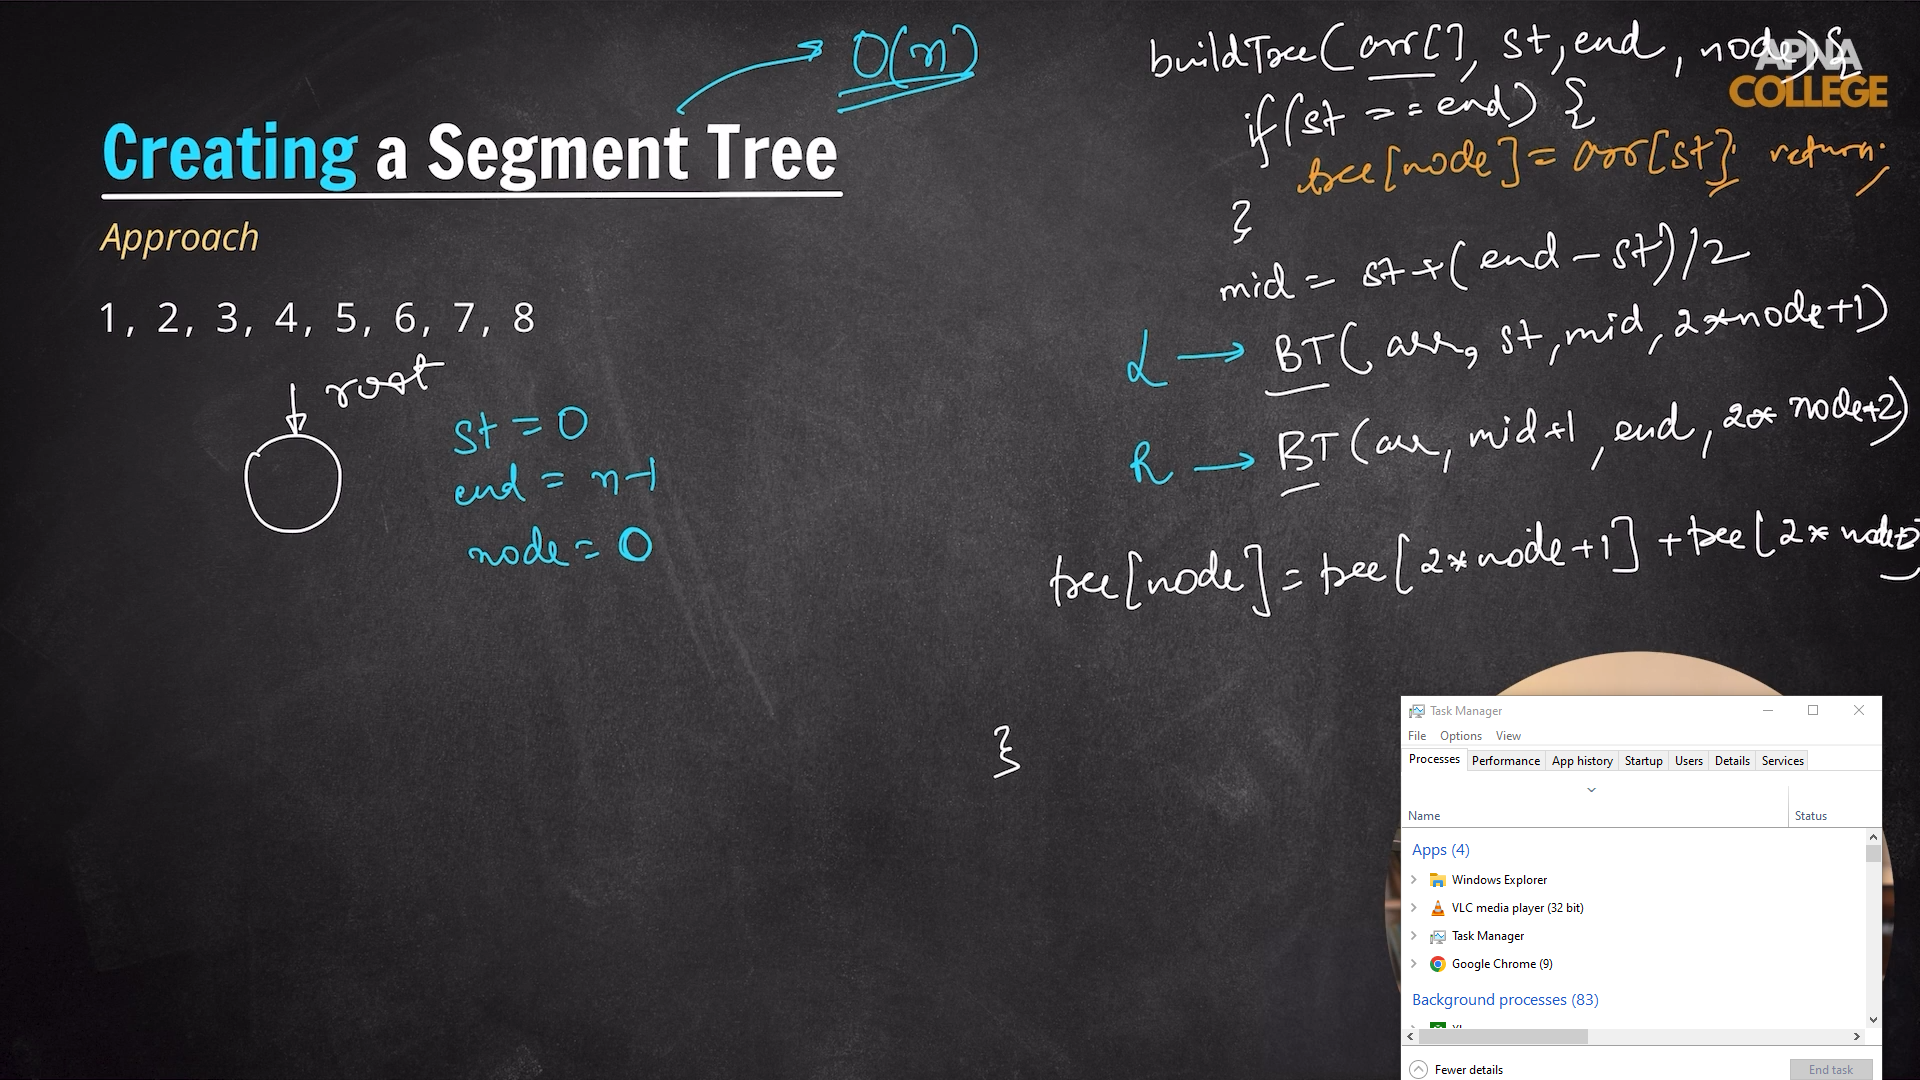 O(n)
Creating a Segment Tree
Approach
1, 2, 3, 4, 5, 6, 7, 8
root
st = 0
end = n-1
node = 0
buildTree(arr[], st, end, node){
APNA
COLLEGE
if(st == end) {
tree[node] = arr[st]; return;
}
mid = st+(end-st)/2
L → BT(arr, st, mid, 2*node+1)
R → BT(arr, mid+1, end, 2* node+2)
tree[node] = tree[2*node+1] + tree[2* node+2]
}
Task Manager
File Options View
Processes Performance App history Startup Users Details Services
Name Status
Apps (4)
Windows Explorer
VLC media player (32 bit)
Task Manager
Google Chrome (9)
Background processes (83)
Fewer details End task